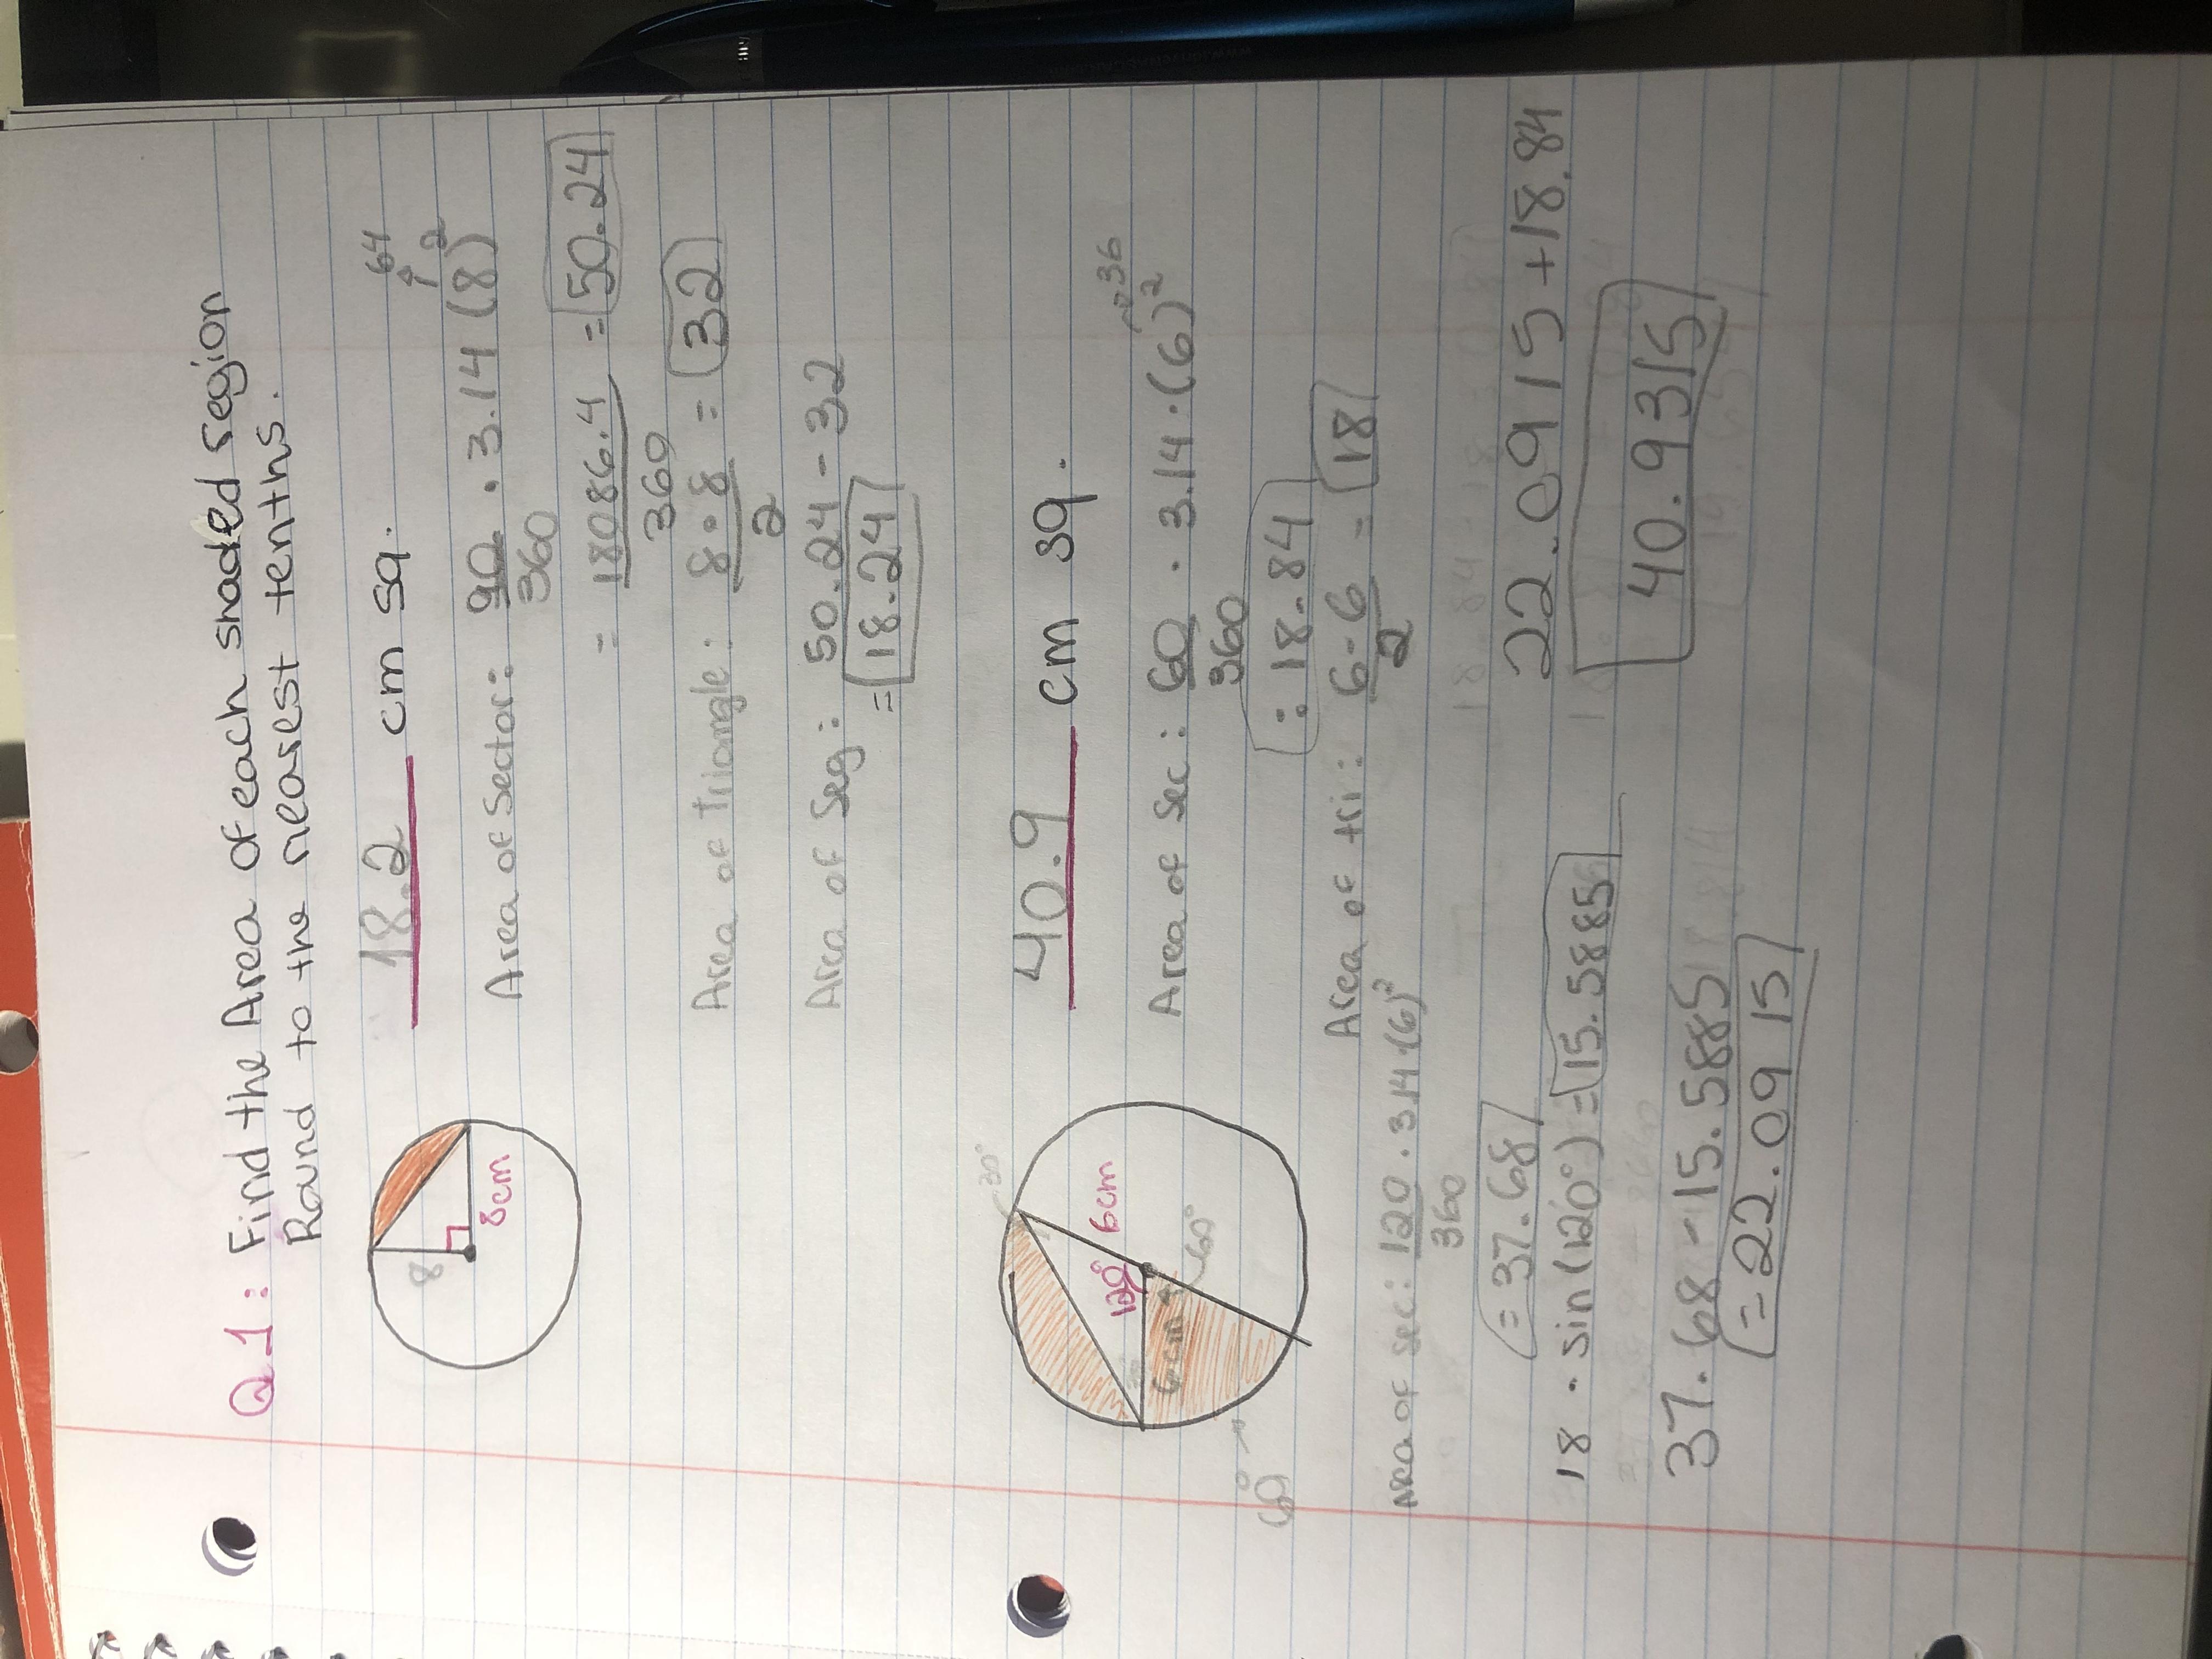 Q1: Find the Area of each shaded region
Round to the nearest tenths.
8
8cm
18.2 cm sq.
64
Area of Sector: 90/360 · 3.14 (8)²
= 18086.4/360 = 50.24
Area of Triangle: 8·8/2 = 32
Area of Seg: 50.24-32
= 18.24
30°
120°
6cm
6cm
60°
60°
40.9 cm sq.
36
Area of Sec: 60/360 · 3.14·(6)²
: 18.84
Area of tri: 6·6/2 = 18
Area of sec: 120/360 · 3.14·(6)²
= 37.68
18 · sin(120°) = 15.5885
37.68 - 15.5885
= 22.0915
22.0915 + 18.84
40.9315